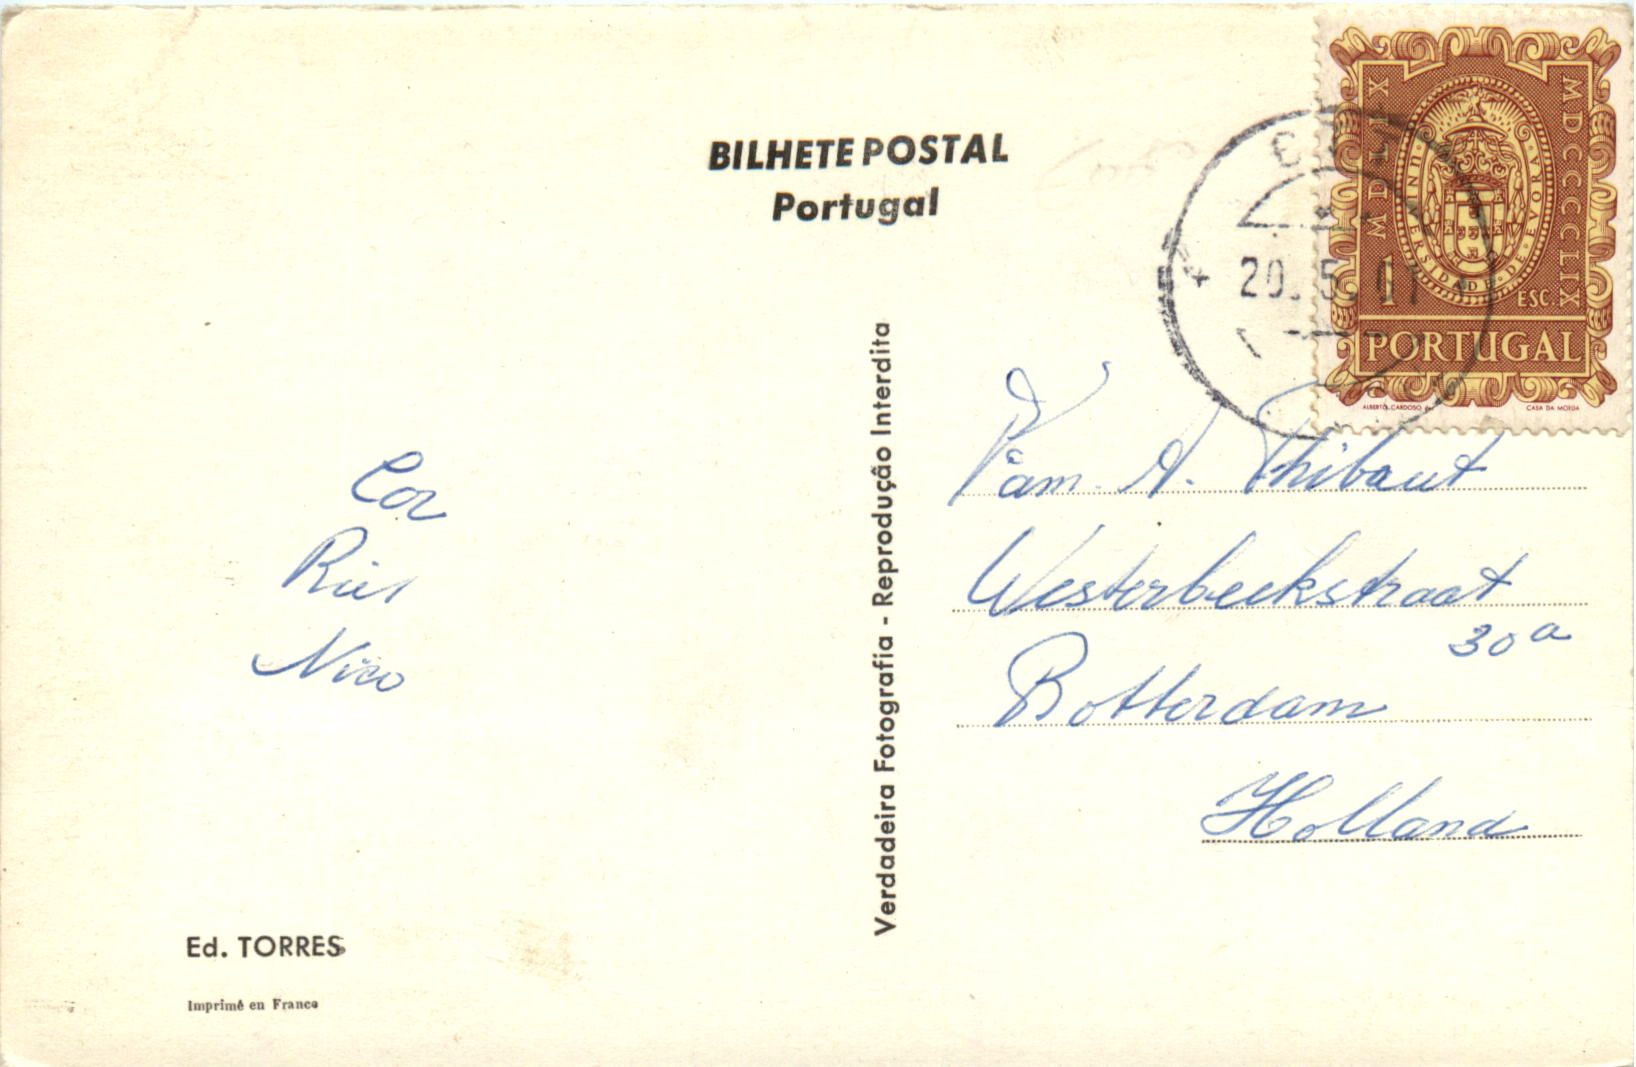 BILHETE POSTAL
Portugal
MDLIX
MDCCCCLIX
UNIVERSIDADE DE EVORA
1
ESC.
PORTUGAL
ALBERTO CARDOSO
CASA DA MOEDA
20. 5. 61
Verdadeira Fotografia - Reprodução Interdita
Cor
Riet
Nico
Fam. A. Thibaut
Westerbeekstraat
30a
Rotterdam
Holland
Ed. TORRES
Imprimé en France